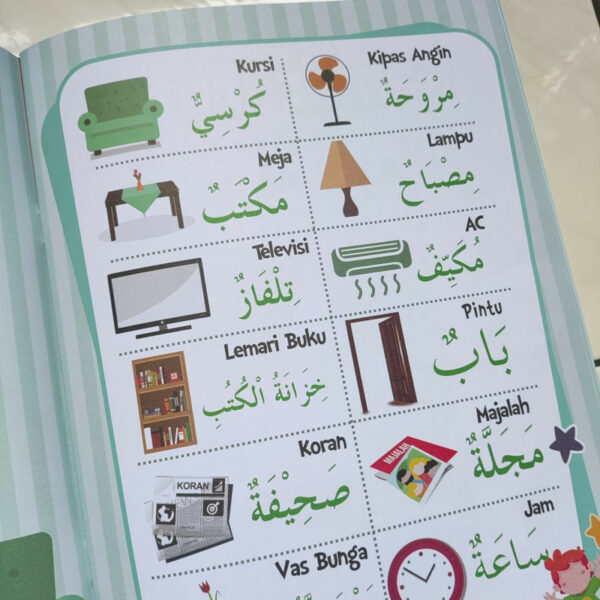 Kursi
كُرْسِيٌّ
Kipas Angin
مِرْوَحَةٌ
Meja
مَكْتَبٌ
Lampu
مِصْبَاحٌ
Televisi
تِلْفَازٌ
AC
مُكَيِّفٌ
Lemari Buku
خِزَانَةُ الْكُتُبِ
Pintu
بَابٌ
Koran
صَحِيْفَةٌ
KORAN
Majalah
مَجَلَّةٌ
MAJALAH
Vas Bunga
Jam
سَاعَةٌ